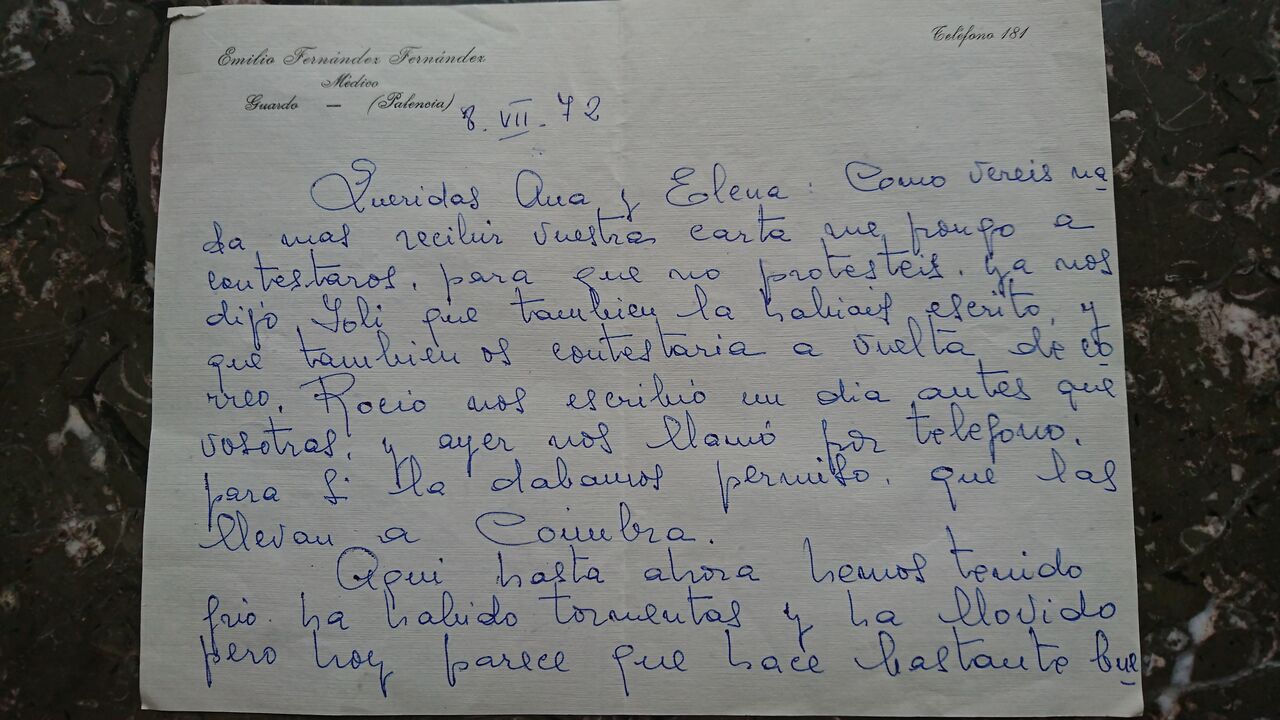 Emilio Fernández Fernández
Médico
Guardo — (Palencia)
Teléfono 181
8. VII. 72
Queridas Ana y Elena: Como vereis na
da mas recibir vuestra carta me pongo a
contestaros, para que no protesteis. ya nos
dijo Yoli que tambien la habiais escrito, y
que tambien os contestaria a vuelta de co
rreo. Rocio nos escribió un dia antes que
vosotras, y ayer nos llamó por telefono,
para si la dabamos permiso, que las
llevan a Coimbra.
Aqui hasta ahora hemos tenido
frio. ha habido tormentas y ha llovido
pero hoy parece que hace bastante bue